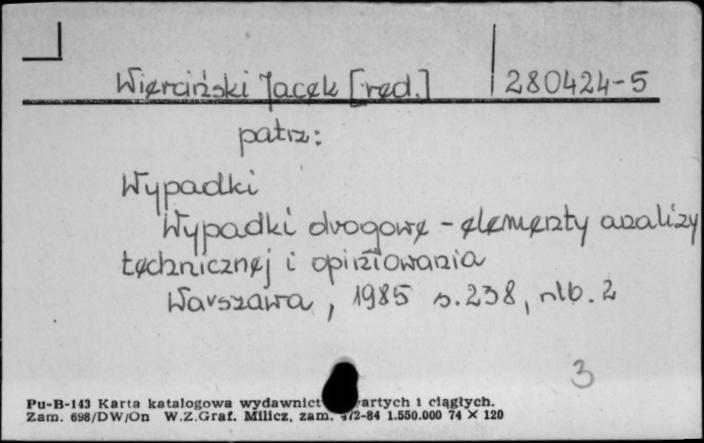 Wierciński Jacek [red.] 280424-5
patrz:
Wypadki
Wypadki drogowe - elementy analizy
technicznej i opiniowania
Warszawa, 1985 s. 238, nlb. 2
3
Pu-B-143 Karta katalogowa wydawnict artych i ciągłych.
Zam. 698/DW/On W.Z.Graf. Milicz, zam. 472-84 1.550.000 74 × 120